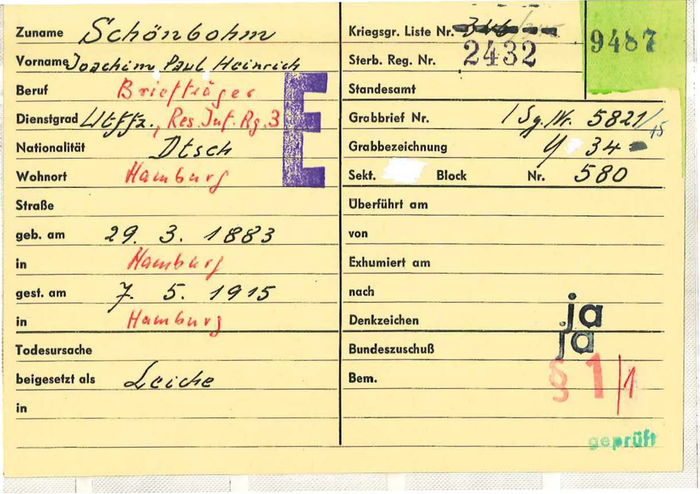 Zuname Schönbohm
Vorname Joachim Paul Heinrich
Beruf Briefträger
Dienstgrad Utffz., Res. Inf. Rg. 3
Nationalität Dtsch
Wohnort Hamburg
Straße
geb. am 29. 3. 1883
in Hamburg
gest. am 7. 5. 1915
in Hamburg
Todesursache
beigesetzt als Leiche
in
E
Kriegsgr. Liste Nr.
Sterb. Reg. Nr. 2432
Standesamt
Grabbrief Nr. 1 Sg. Nr. 5821/15
Grabbezeichnung Y 34
Sekt. Block Nr. 580
Überführt am
von
Exhumiert am
nach
Denkzeichen ja
Bundeszuschuß ja
Bem. § 1/1
geprüft
9487